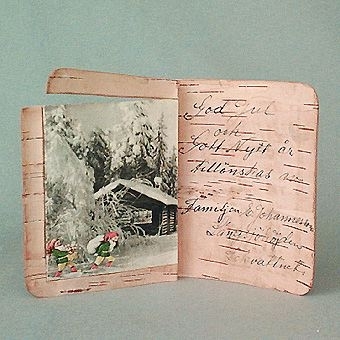 God Jul
och
Gott Nytt år
tillönskas av
Familjen Johannesson